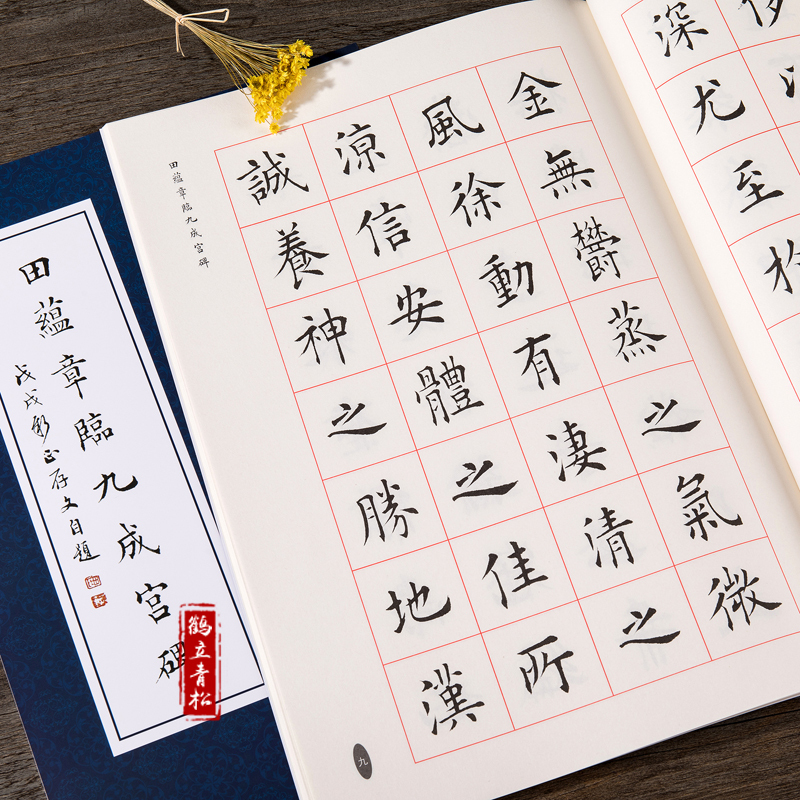 深尤至於
金無鬱蒸之氣微
風徐動有淒清之
涼信安體之佳所
誠養神之勝地漢
田蘊章臨九成宮碑
九
田蘊章臨九成宮碑
戊戌新正存文自題
鹤立青松